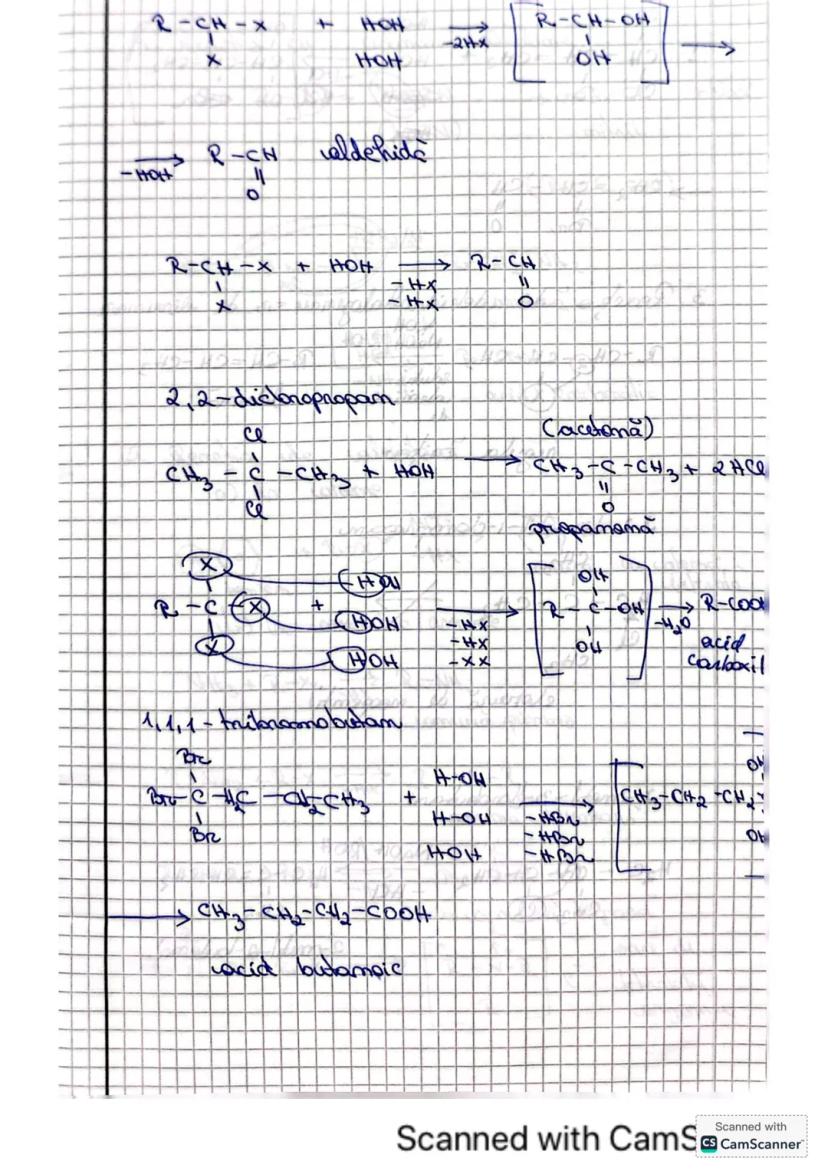 R-CH-X + HOH -2HX [R-CH-OH] →
X HOH OH
-HOH → R-CH aldehidă
||
O
R-CH-X + HOH → R-CH
X -HX ||
-HX O
2,2-dicloropropan
Cl (acetonă)
CH3 - C - CH3 + HOH → CH3-C-CH3 + 2HCl
Cl ||
O
propanonă
X HOH OH
R - C - X + HOH → [R - C - OH] -H2O → R-COO
X HOH -HX OH acid
-HX carboxil
-XX
1,1,1-tribromobutan
Br
Br-C-H2C-CH2-CH3 + H-OH → [CH3-CH2-CH2-
Br H-OH -HBr OH
HOH -HBr OH
-HBr
→ CH3-CH2-CH2-COOH
acid butanoic
Scanned with CamS
Scanned with
CS CamScanner